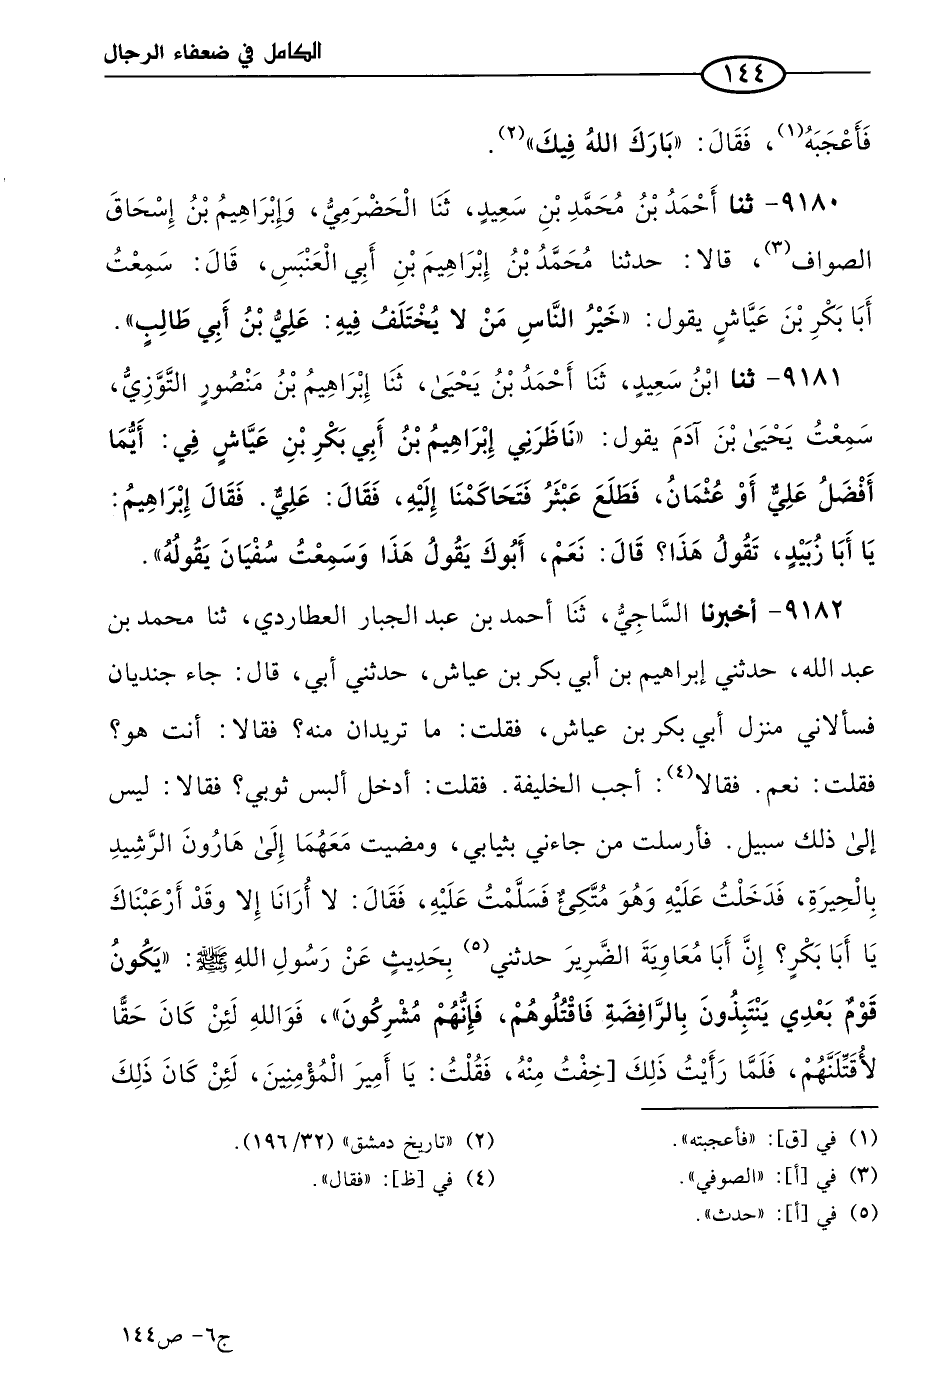 الكامل في ضعفاء الرجال
١٤٤
فَأَعْجَبَهُ(١)، فَقَالَ: «بَارَكَ اللهُ فِيكَ»(٢).
٩١٨٠- ثنا أَحْمَدُ بْنُ مُحَمَّدِ بْنِ سَعِيدٍ، ثَنَا الْحَضْرَمِيُّ، وَإِبْرَاهِيمُ بْنُ إِسْحَاقَ
الصواف(٣)، قالا: حدثنا مُحَمَّدُ بْنُ إِبْرَاهِيمَ بْنِ أَبِي الْعَنْبَسِ، قَالَ: سَمِعْتُ
أَبَا بَكْرِ بْنَ عَيَّاشٍ يقول: «خَيْرُ النَّاسِ مَنْ لا يُخْتَلَفُ فِيهِ: عَلِيُّ بْنُ أَبِي طَالِبٍ».
٩١٨١- ثنا ابْنُ سَعِيدٍ، ثَنَا أَحْمَدُ بْنُ يَحْيَىٰ، ثَنَا إِبْرَاهِيمُ بْنُ مَنْصُورٍ التَّوَّزِيُّ،
سَمِعْتُ يَحْيَىٰ بْنَ آدَمَ يقول: «نَاظَرَنِي إِبْرَاهِيمُ بْنُ أَبِي بَكْرِ بْنِ عَيَّاشٍ فِي: أَيُّمَا
أَفْضَلُ عَلِيٌّ أَوْ عُثْمَانُ، فَطَلَعَ عَبْثَرُ فَتَحَاكَمْنَا إِلَيْهِ، فَقَالَ: عَلِيٌّ. فَقَالَ إِبْرَاهِيمُ:
يَا أَبَا زُبَيْدٍ، تَقُولُ هَذَا؟ قَالَ: نَعَمْ، أَبُوكَ يَقُولُ هَذَا وَسَمِعْتُ سُفْيَانَ يَقُولُهُ».
٩١٨٢- أخبرنا السَّاجِيُّ، ثَنَا أحمد بن عبد الجبار العطاردي، ثنا محمد بن
عبد الله، حدثني إبراهيم بن أبي بكر بن عياش، حدثني أبي، قال: جاء جنديان
فسألاني منزل أبي بكر بن عياش، فقلت: ما تريدان منه؟ فقالا: أنت هو؟
فقلت: نعم. فقالا(٤): أجب الخليفة. فقلت: أدخل ألبس ثوبي؟ فقالا: ليس
إلىٰ ذلك سبيل. فأرسلت من جاءني بثيابي، ومضيت مَعَهُمَا إِلَىٰ هَارُونَ الرَّشِيدِ
بِالْحِيرَةِ، فَدَخَلْتُ عَلَيْهِ وَهُوَ مُتَّكِئٌ فَسَلَّمْتُ عَلَيْهِ، فَقَالَ: لا أُرَانَا إِلا وقَدْ أَرْعَبْنَاكَ
يَا أَبَا بَكْرٍ؟ إِنَّ أَبَا مُعَاوِيَةَ الضَّرِيرَ حدثني(٥) بِحَدِيثٍ عَنْ رَسُولِ اللهِ ﷺ: «يَكُونُ
قَوْمٌ بَعْدِي يَنْتَبِذُونَ بِالرَّافِضَةِ فَاقْتُلُوهُمْ، فَإِنَّهُمْ مُشْرِكُونَ»، فَوَاللهِ لَئِنْ كَانَ حَقًّا
لأُقَتِّلَنَّهُمْ، فَلَمَّا رَأَيْتُ ذَلِكَ [خِفْتُ مِنْهُ، فَقُلْتُ: يَا أَمِيرَ الْمُؤْمِنِينَ، لَئِنْ كَانَ ذَلِكَ
(١) في [ق]: «فأعجبته».
(٢) «تاريخ دمشق» (٣٢/١٩٦).
(٣) في [أ]: «الصوفي».
(٤) في [ظ]: «فقال».
(٥) في [أ]: «حدث».
ج٦- ص١٤٤